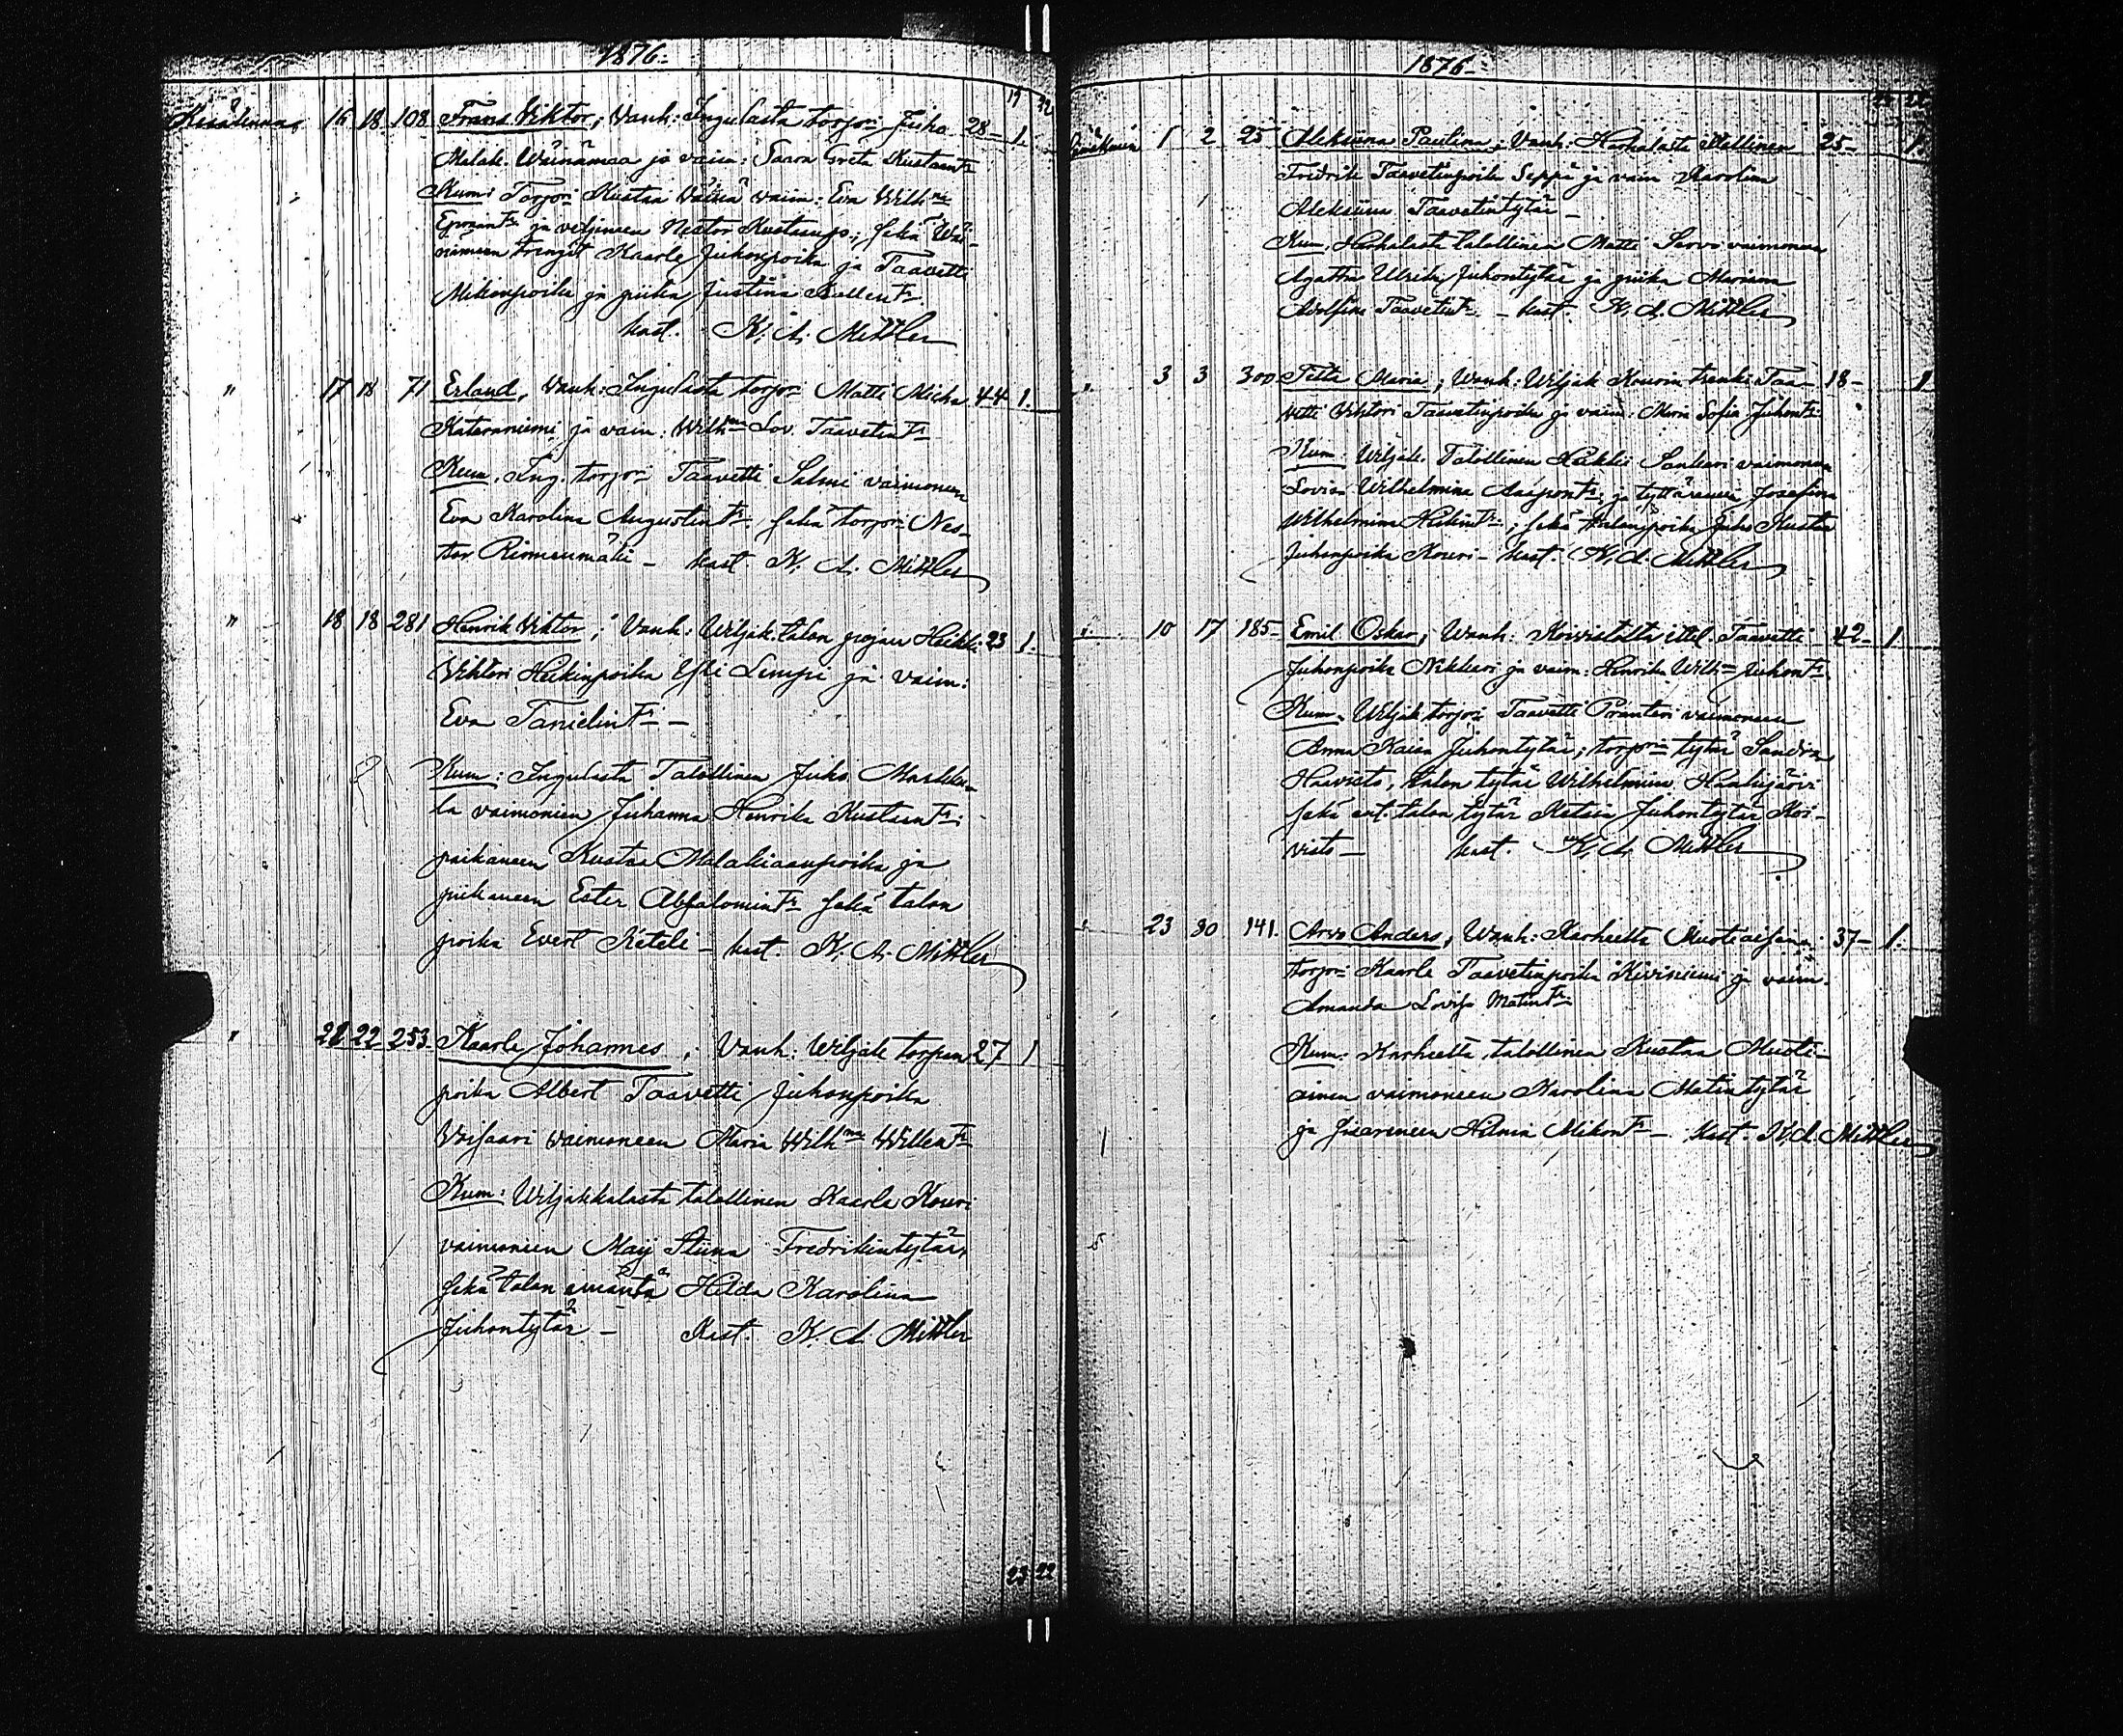 1876.
19 22
Kesäkuussa 16 18 108 Frans Viktor; Vanh: Ingulasta torpri Juho 28– 1.
Malak. Wäinämaa ja vaim: Saara Greta Kustaantr
Kum: Torpri Kustaa vaim: Eva Wilhna
ja veljineen Nestor Kustaanp; sekä Wäi-
nämeen trengit Kaarle Juhonpoika ja Taavetti
Mikonpoika ja piika Justina Kallentr.
kast. K. A. Mittler
" 17 18 71 Erland, Vanh: Ingulasta torpri Matti Micha 44 1.
Kateraniemi ja vaim: Wilhna Lov. Taavetintr
Kum. Ing. torpri Taavetti Salmi vaimoneen
Eva Karolina Augustintr sekä torpri Nes-
tor Riomunmäki – kast. K. A. Mittler
" 18 18 281 Henrik Viktor; Vanh: Wiljak. talon pojan Heikki 23 1.
Viktori Heikinpoika Yli Lempi ja vaim:
Eva Tanielintr –
Kum: Ingulasta Talollinen Juho Markka-
la vaimoneen Juhanna Henrika Kustaantr:
poikaneen Kustaa Malakiaanpoika ja
piikaneen Ester Absalomintr sekä talon
poika Evert Keteli – kast. K. A. Mittler
" 22 22 253. Kaarle Johannes; Vanh: Wiljak torpan 27 1
poika Albert Taavetti Juhonpoika
Voisaari vaimoneen Maria Wilhna Willentr
Kum: Wiljakkalasta talollinen Kaarle Kouri
vaimoneen Maij Stiina Fredrikintytär,
sekä talon emäntä Hilda Karolina
Juhontytär – Kast. K. A. Mittler
23 22
1876.
Heinäkuun 1 2 25 Aleksiina Paulina; Vanh: Harhalasta Itsellinen 25– 1.
Fredrik Taavetinpoika Seppä ja vaim Karolina
Aleksiina Taavetintytär –
Kum: Harhalasta talollinen Matti Sarvi vaimoneen
Agatha Ulrika Juhontytär ja piika Mariana
Adolfina Taavetintr. – kast. K. A. Mittler
" 3 3 300 Maria; Vanh: Wiljak Kourin trenki Taa- 18– 1
vetti Viktori Taavetinpoika ja vaim: Maria Sofia Juhontr
Kum: Wiljak. Talollinen Heikki Sankari vaimoneen
Lovisa Wilhelmina Aapontr; ja tyttäreneen Josefina
Wilhelmina Heikintr; sekä talonpoika Juho Kustaa
Juhonpoika Kouri – kast. K. A. Mittler
" 10 17 185 Emil Oskar; Vanh: Koivistolta ittel. Taavetti 42– 1
Juhonpoika Nikkari ja vaim: Henrika Wilhna Juhontr.
Kum. Wiljak torpri Taavetti Prantori vaimoneen
Anna Kaisa Juhontytär; torprin tytär Sandra
Haavisto, talon tytär Wilhelmina Haukijärvi
sekä ent. talon tytär Retsia Juhontytär Koi-
visto – kast. K. A. Mittler
" 23 30 141. Arvo Anders; Vanh: Karheelta Muotiaisen 37– 1.
torpri Kaarle Taavetinpoika Kiviniemi ja vaim.
Amanda Lovisa Matintr
Kum: Karheelta talollinen Kustaa Muoti-
ainen vaimoneen Karolina Matintytär
ja sisareneen Hilma Mikontr – kast. K. A. Mittler